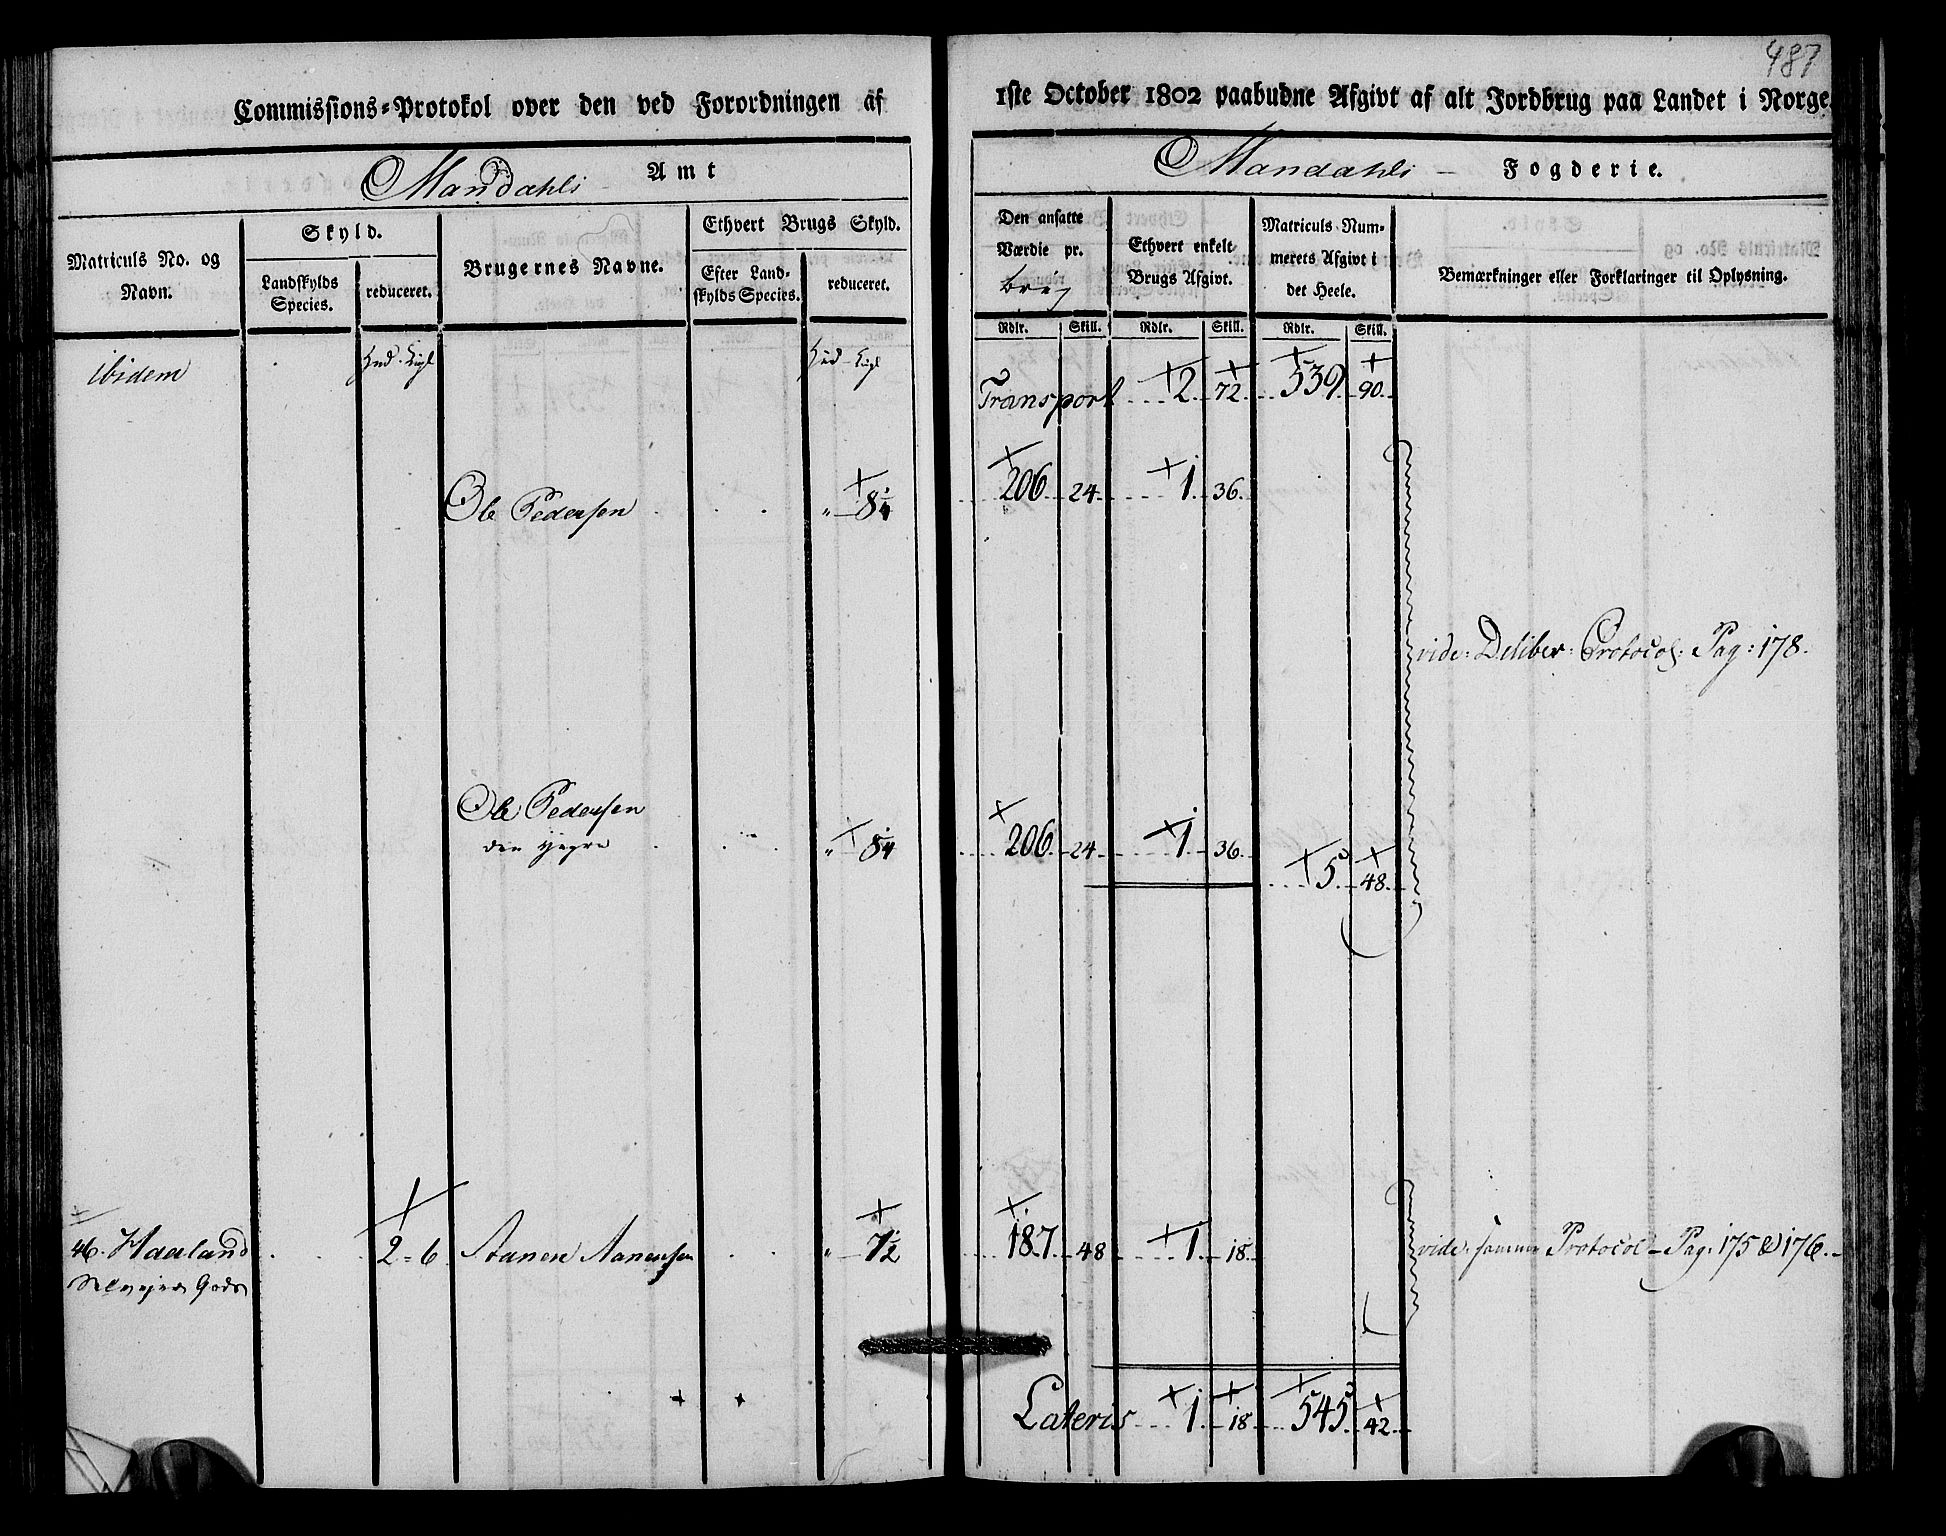 487
Commissions-Protokol over den ved Forordningen af 1ste October 1802 paabudne Afgivt af alt Jordbrug paa Landet i Norge.
Mandahls Amt
Mandahls Fogderie.
Matriculs No. og Navn.
Skyld.
Landskylds Species.
reduceret.
Brugernes Navne.
Ethvert Brugs Skyld.
Efter Landskylds Species.
reduceret.
Den ansatte Værdie pr. brug
Ethvert enkelt Brugs Afgivt.
Matriculs Nummerets Afgivt i det Heele.
Bemærkninger eller Forklaringer til Oplysning.
Rdlr. Skill. Rdlr. Skill. Rdlr. Skill.
ibidem
Transport 2 72 539 90
Ole Pedersen 206 24 1 36
vide: Deliber: Protocol: Pag: 178.
Ole Pedersen
den yngre 206 24 1 36 5 48
46. Haaland 2=6 Aanen Aanensen 7½ 187 48 1 18 vide samme Protocol Pag: 175 & 176.
Selvejer Gods
Lateris 1 18 545 42